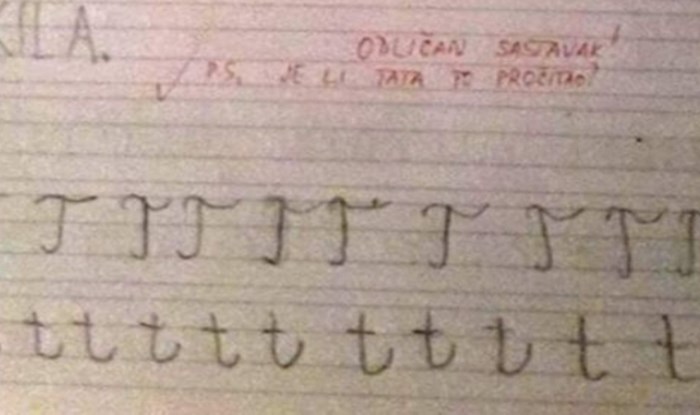 ILA.
ODLIČAN SASTAVAK!
P.S. JE LI TATA TO PROČITAO?
T T T T T T T T T
t t t t t t t t t t